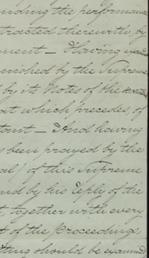 nding the performan
tracted therewith, by
ment - Having
nished by the Supreme
by it Notes of the
at which precedes, of
tent - And having
been prayed by the
al of this Supreme
nd by his Reply of the
t, together with every
t of the Proceedings
thing should be examined